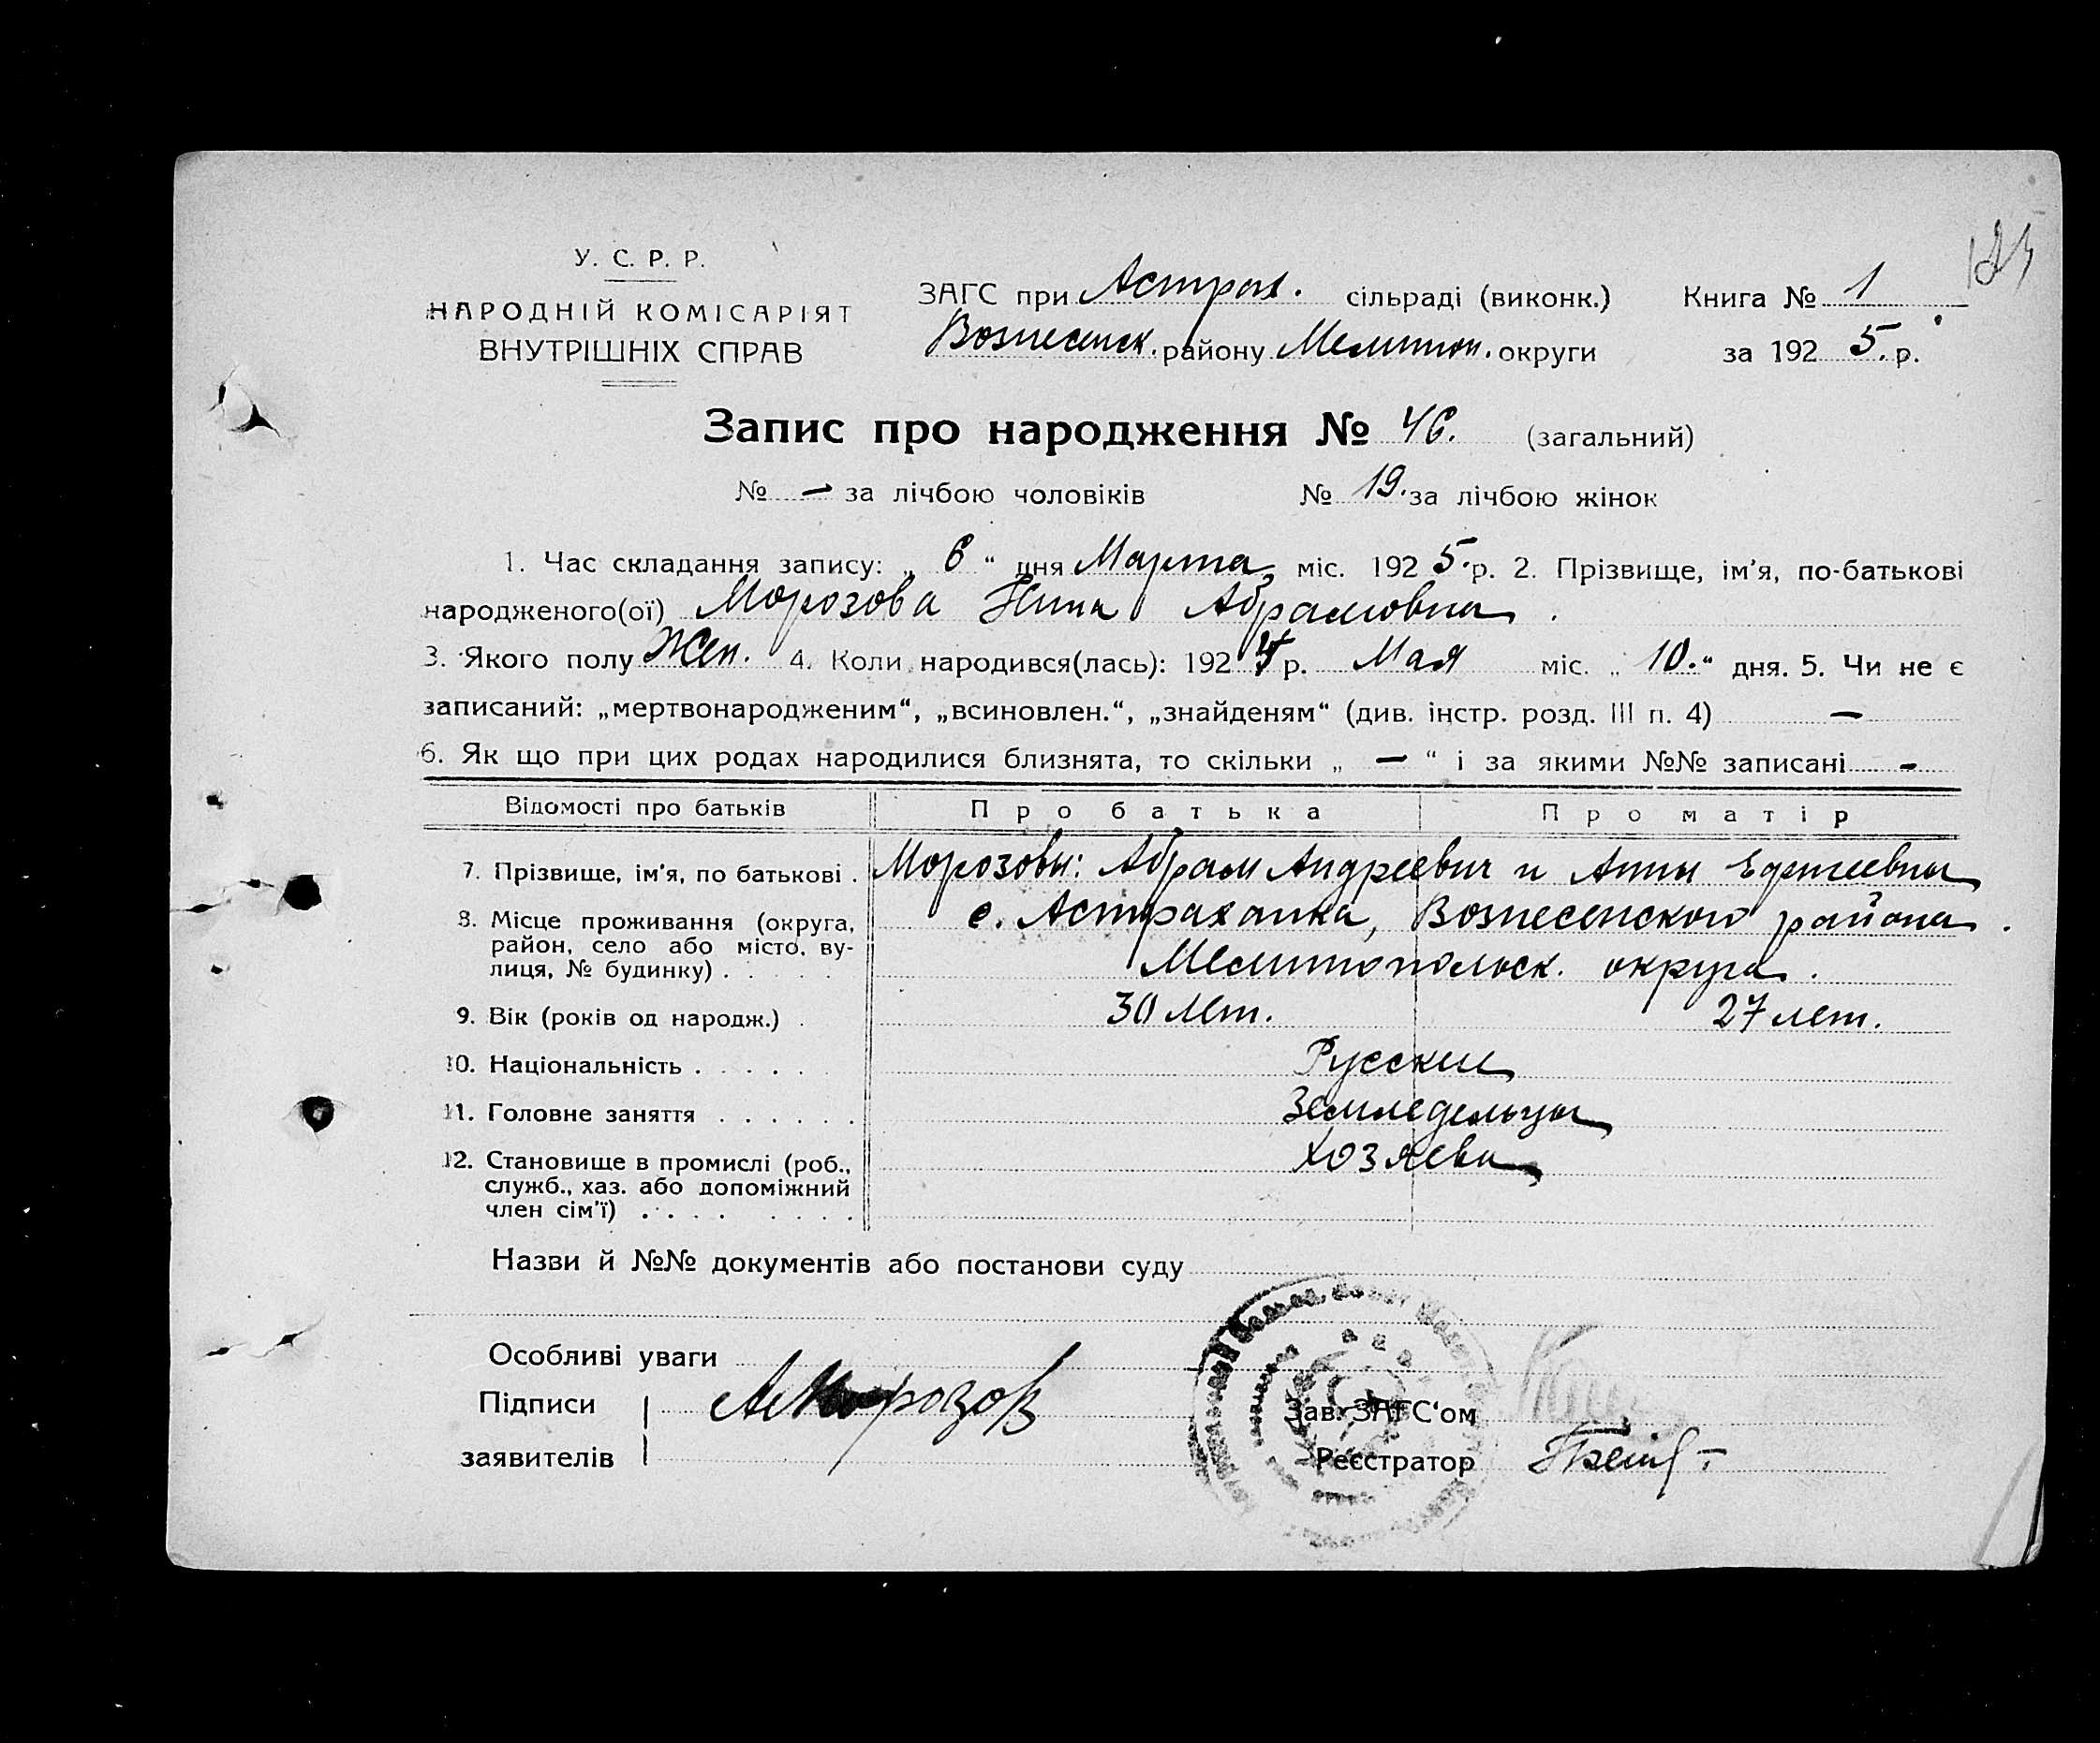 У. С. Р. Р.
НАРОДНІЙ КОМІСАРІЯТ
ВНУТРІШНІХ СПРАВ
ЗАГС при Астрах. сільраді (виконк.)
Вознесенск. району Мелитоп. округи
Книга № 1
за 192 5. р.
Запис про народження № 46. (загальний)
№ — за лічбою чоловіків № 19. за лічбою жінок
1. Час складання запису: „ 6 “ дня Марта міс. 192 5. р. 2. Прізвище, ім'я, по-батькові
народженого(ої) Морозова Нина Абрамовна.
3. Якого полу Жен. 4. Коли народився(лась): 192 4 р. Мая міс. „ 10. “ дня. 5. Чи не є
записаний: „мертвонародженим“, „всиновлен.“, „знайденям“ (див. інстр. розд. III п. 4) —
6. Як що при цих родах народилися близнята, то скільки „ — “ і за якими №№ записані -
Відомості про батьків Про батька Про матір
7. Прізвище, ім'я, по батькові . Морозовы: Абрам Андреевич и Анны
8. Місце проживання (округа, с. Астраханка, Вознесенского района.
район, село або місто, ву-
лиця, № будинку) . . . . . Мелитопольск. округа.
9. Вік (років од народж.) . 30 лет. 27 лет.
10. Національність . . . . . . Русские
11. Головне заняття . . . . . . Земледельцы
12. Становище в промислі (роб., Хозяева
служб., хаз. або допоміжний
член сім'ї) . . . . . . . .
Назви й №№ документів або постанови суду
Особливі уваги
Підписи АМорозов Зав. ЗАГС'ом
заявителів Реєстратор